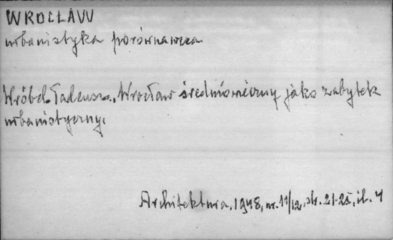 WROCŁAW
urbanistyka porównawcza
Wróbel Tadeusz, Wrocław średniowieczny jako zabytek
urbanistyczny.
Architektura, 1948, nr. 11/12, str. 21-25, il. 4